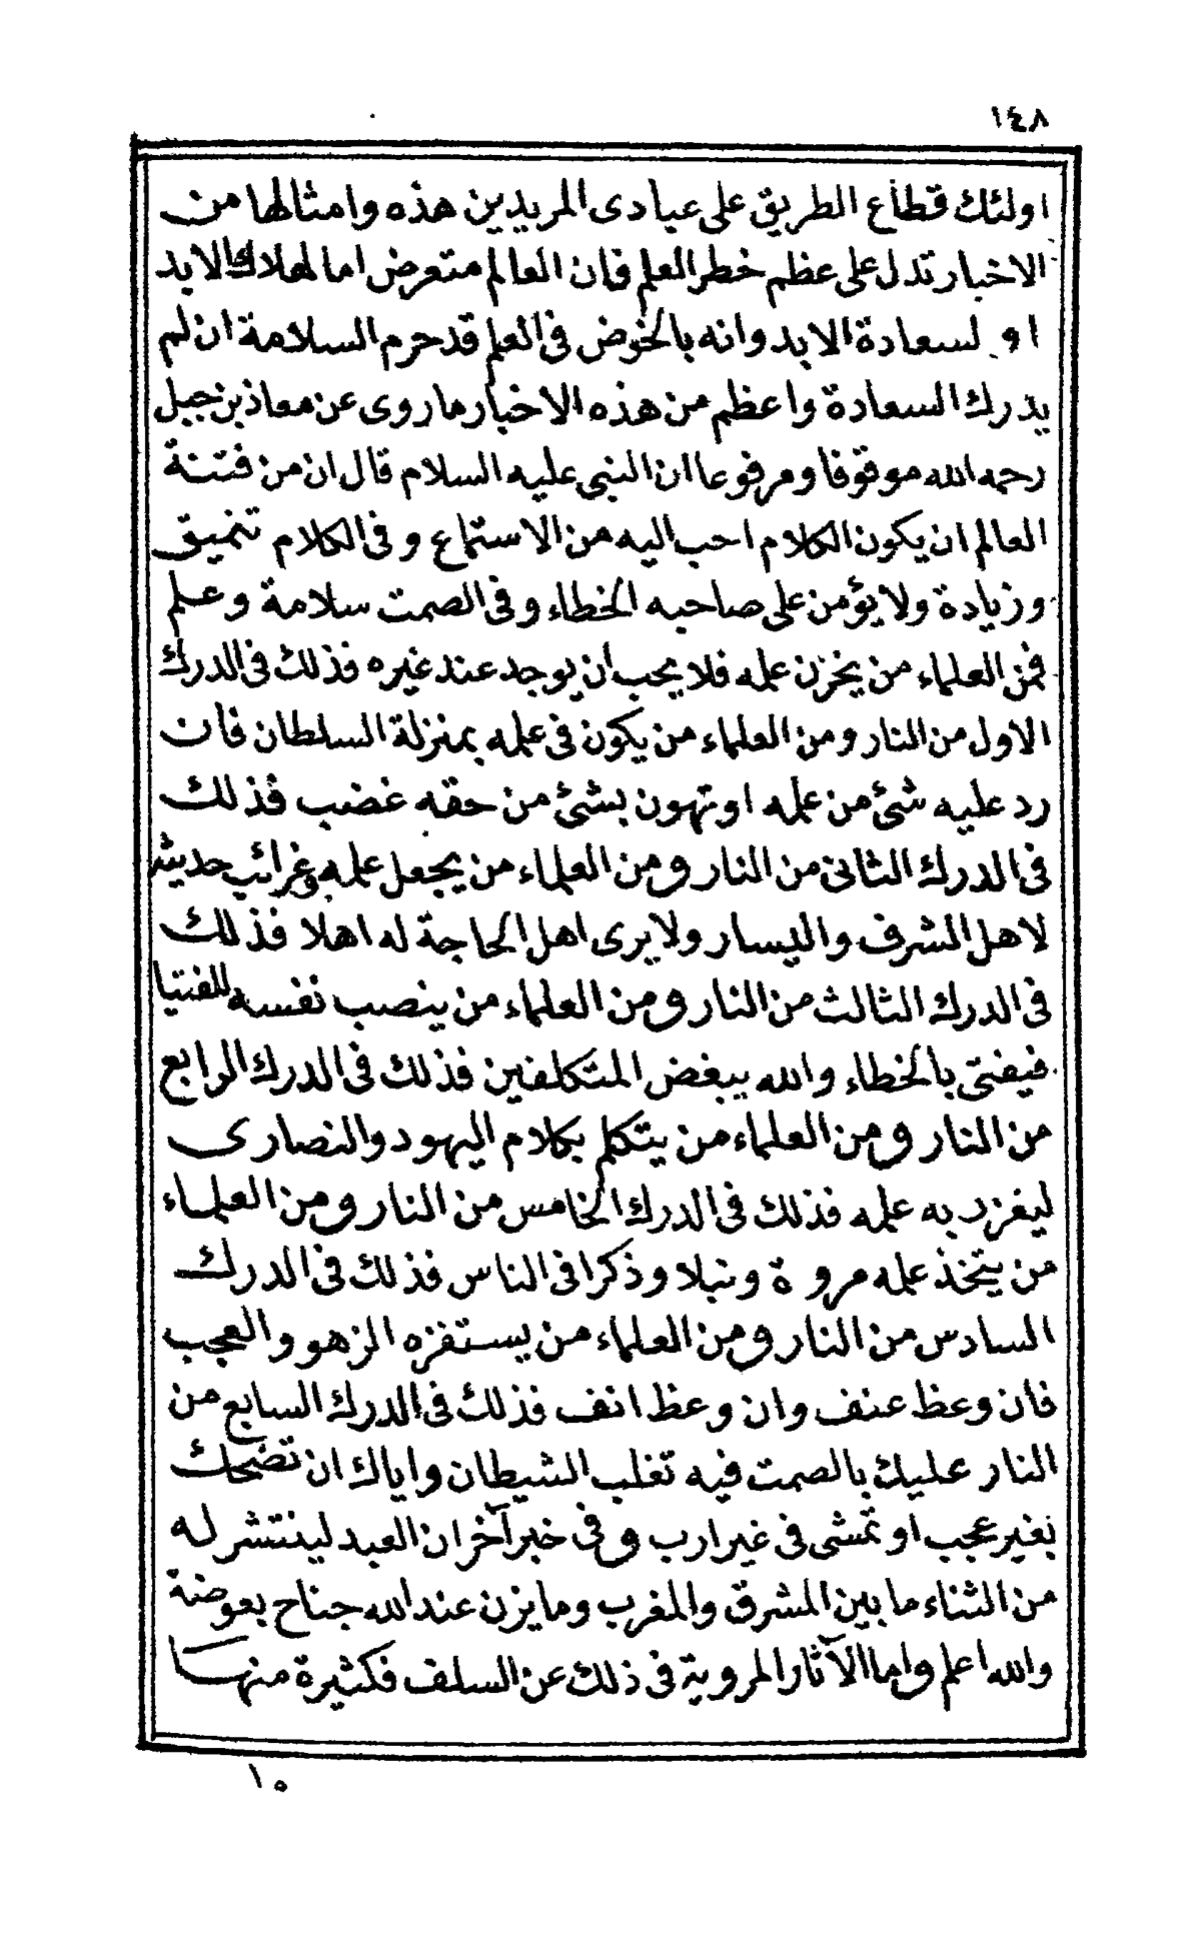 ١٤٨
اولئك قطاع الطريق على عبادى المريدين هذه وامثالها من
الاخبار تدل على عظم خطر العلم فان العالم متعرض اما لهلاك الابد
او لسعادة الابد وانه بالخوض فى العلم قد حرم السلامة ان لم
يدرك السعادة واعظم من هذه الاخبار ما روى عن معاذ بن جبل
رحمه الله موقوفا ومرفوعا ان النبى عليه السلام قال ان من فتنة
العالم ان يكون الكلام احب اليه من الاستماع وفى الكلام تنميق
وزيادة ولا يؤمن على صاحبه الخطاء وفى الصمت سلامة وعلم
فمن العلماء من يخزن علمه فلا يحب ان يوجد عند غيره فذلك فى الدرك
الاول من النار ومن العلماء من يكون فى علمه بمنزلة السلطان فان
رد عليه شئ من علمه او تهون بشئ من حقه غضب فذلك
فى الدرك الثانى من النار ومن العلماء من يجعل علمه وغرائب حديثه
لاهل الشرف واليسار ولا يرى اهل الحاجة له اهلا فذلك
فى الدرك الثالث من النار ومن العلماء من ينصب نفسه للفتيا
فيفتى بالخطاء والله يبغض المتكلفين فذلك فى الدرك الرابع
من النار ومن العلماء من يتكلم بكلام اليهود والنصارى
ليغزر به علمه فذلك فى الدرك الخامس من النار ومن العلماء
من يتخذ علمه مروة ونبلا وذكرا فى الناس فذلك فى الدرك
السادس من النار ومن العلماء من يستفزه الزهو والعجب
فان وعظ عنف وان وعظ انف فذلك فى الدرك السابع من
النار عليك بالصمت فيه تغلب الشيطان واياك ان تضحك
بغير عجب او تمشى فى غير ارب وفى خبر آخر ان العبد لينتشر له
من الثناء ما بين المشرق والمغرب وما يزن عند الله جناح بعوضة
والله اعلم واما الآثار المروية فى ذلك عن السلف فكثيرة منها
١٥